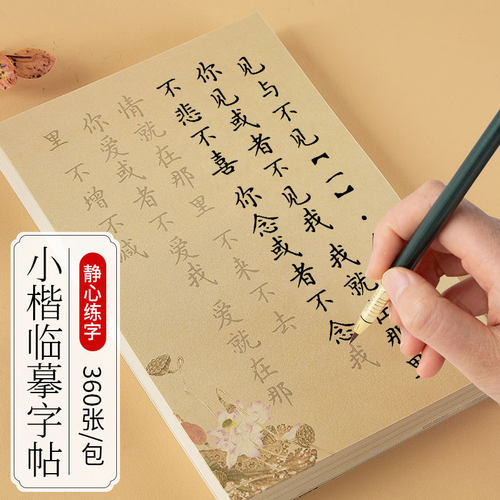 见与不见【一】·
你见或者不见我 我就在那里
不悲不喜 你念或者不念我
情就在那里 不来不去
你爱或者不爱我 爱就在那
里 不增不减
静心练字
360张/包
小楷临摹字帖